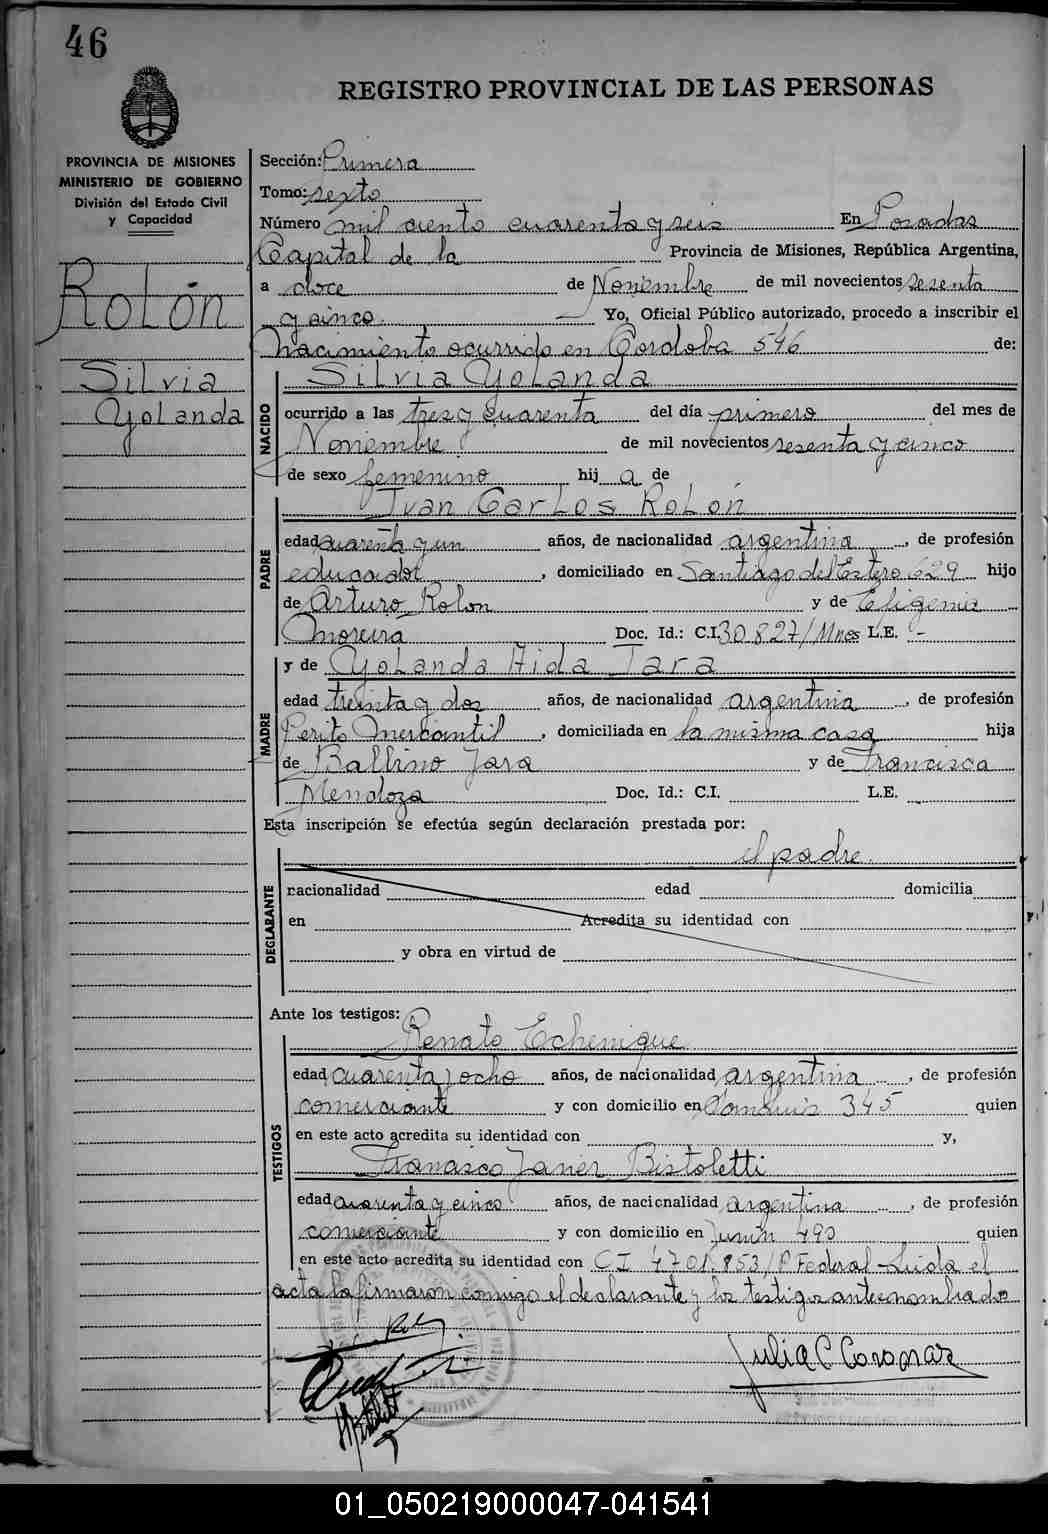 46
REGISTRO PROVINCIAL DE LAS PERSONAS
PROVINCIA DE MISIONES
MINISTERIO DE GOBIERNO
División del Estado Civil
y Capacidad
Rolón
Silvia
Yolanda
Sección: Primera
Tomo: sexto
Número mil ciento cuarenta y seis En Posadas
Capital de la Provincia de Misiones, República Argentina,
a doce de Noviembre de mil novecientos sesenta
y cinco Yo, Oficial Público autorizado, procedo a inscribir el
Nacimiento ocurrido en Cordoba 546 de:
NACIDO
Silvia Yolanda
ocurrido a las tres y cuarenta del día primero del mes de
Noviembre de mil novecientos sesenta y cinco
de sexo femenino hij a de
PADRE
Ivan Carlos Rolón
edad cuarenta y un años, de nacionalidad argentina, de profesión
educador, domiciliado en Santiago del Estero 629 hijo
de Arturo Rolon y de Efigenia
Moreira Doc. Id.: C.I. 30.827/Mnes L.E. -
MADRE
y de Yolanda Aida Jara
edad treinta y dos años, de nacionalidad argentina, de profesión
Perito Mercantil, domiciliada en la misma casa hija
de Balbino Jara y de Francisca
Mendoza Doc. Id.: C.I. L.E.
Esta inscripción se efectúa según declaración prestada por:
DECLARANTE
el padre
nacionalidad edad domicilia
en Acredita su identidad con
y obra en virtud de
Ante los testigos:
TESTIGOS
Renato Echenique
edad cuarenta y ocho años, de nacionalidad argentina, de profesión
comerciante y con domicilio en 345 quien
en este acto acredita su identidad con y,
Francisco Javier Bistoletti
edad cuarenta y cinco años, de nacionalidad argentina, de profesión
comerciante y con domicilio en Junin 490 quien
en este acto acredita su identidad con CI 4.701.853/P Federal - Leida el
acta la firmaron conmigo el declarante y los testigos antes nombrados
Julia C Coronar
01_050219000047-041541